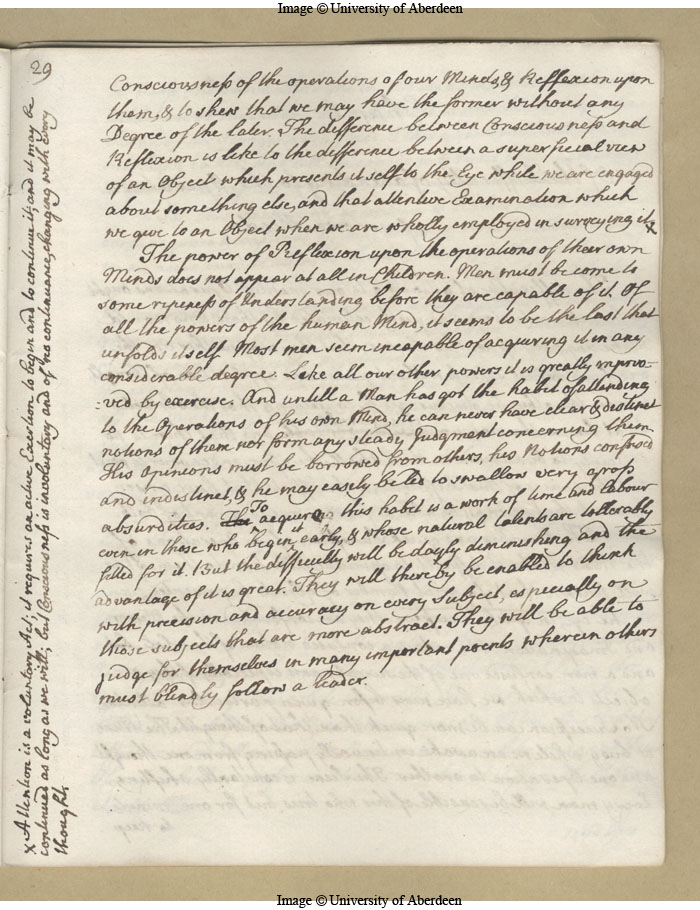 Image © University of Aberdeen
29
Consciousness of the operations of our Minds, & Reflexion upon
them, & to shew that we may have the former without any
Degree of the later. The difference between Consciousness and
Reflexion is like to the difference between a superficial view
of an Object which presents it self to the Eye while we are engaged
about something else, and that attentive Examination which
we give to an Object when we are wholly employed in surveying it x
The power of Reflexion upon the operations of their own
Minds does not appear at all in Children. Men must be come to
some ripeness of Understanding before they are capable of it. Of
all the powers of the human Mind, it seems to be the last that
unfolds it self. Most men seem incapable of acquiring it in any
considerable degree. Like all our other powers it is greatly impro-
-ved by exercise. And untill a Man has got the habit of attending
to the Operations of his own Mind, he can never have clear & distinct
notions of them nor form any steady Judgment concerning them.
His Opinions must be borrowed from others, his Notions confused
and indistinct, & he may easily be led to swallow very gross
absurdities. To acquire this habit is a work of time and labour
even in those who begin it early, & whose natural talents are tollerably
fitted for it. But the difficulty will be dayly diminishing and the
advantage of it is great. They will thereby be enabled to think
with precision and accuracy on every subject, especially on
those subjects that are more abstract. They will be able to
judge for themselves in many important points wherein others
must blindly follow a leader.
x Attention is a voluntary Act; it requires an active Exertion to begin and to continue it; and it may be
continued as long as we will; but Consciousness is involuntary and of no continuance, changing with every
thought.
Image © University of Aberdeen